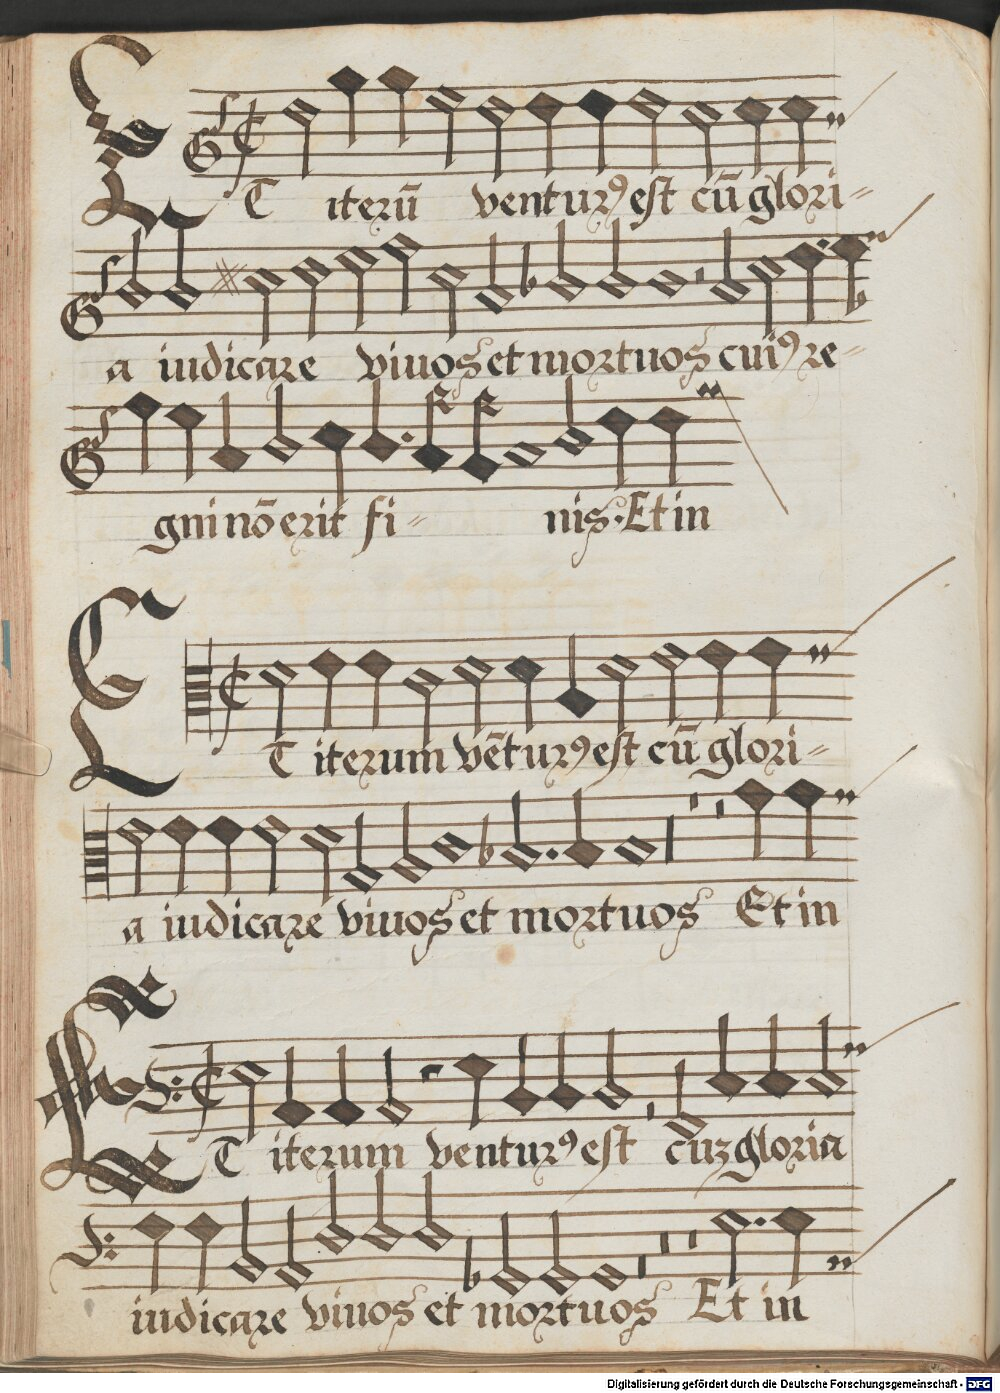 ET iterū venturꝰ est cū glori=
a iudicare viuos et mortuos cuiꝰ re=
gni nō erit fi= nis. Et in
ET iterum vēturꝰ est cū glori=
a iudicare viuos et mortuos Et in
ET iterum venturꝰ est cuz gloria
iudicare viuos et mortuos Et in
Digitalisierung gefördert durch die Deutsche Forschungsgemeinschaft - DFG